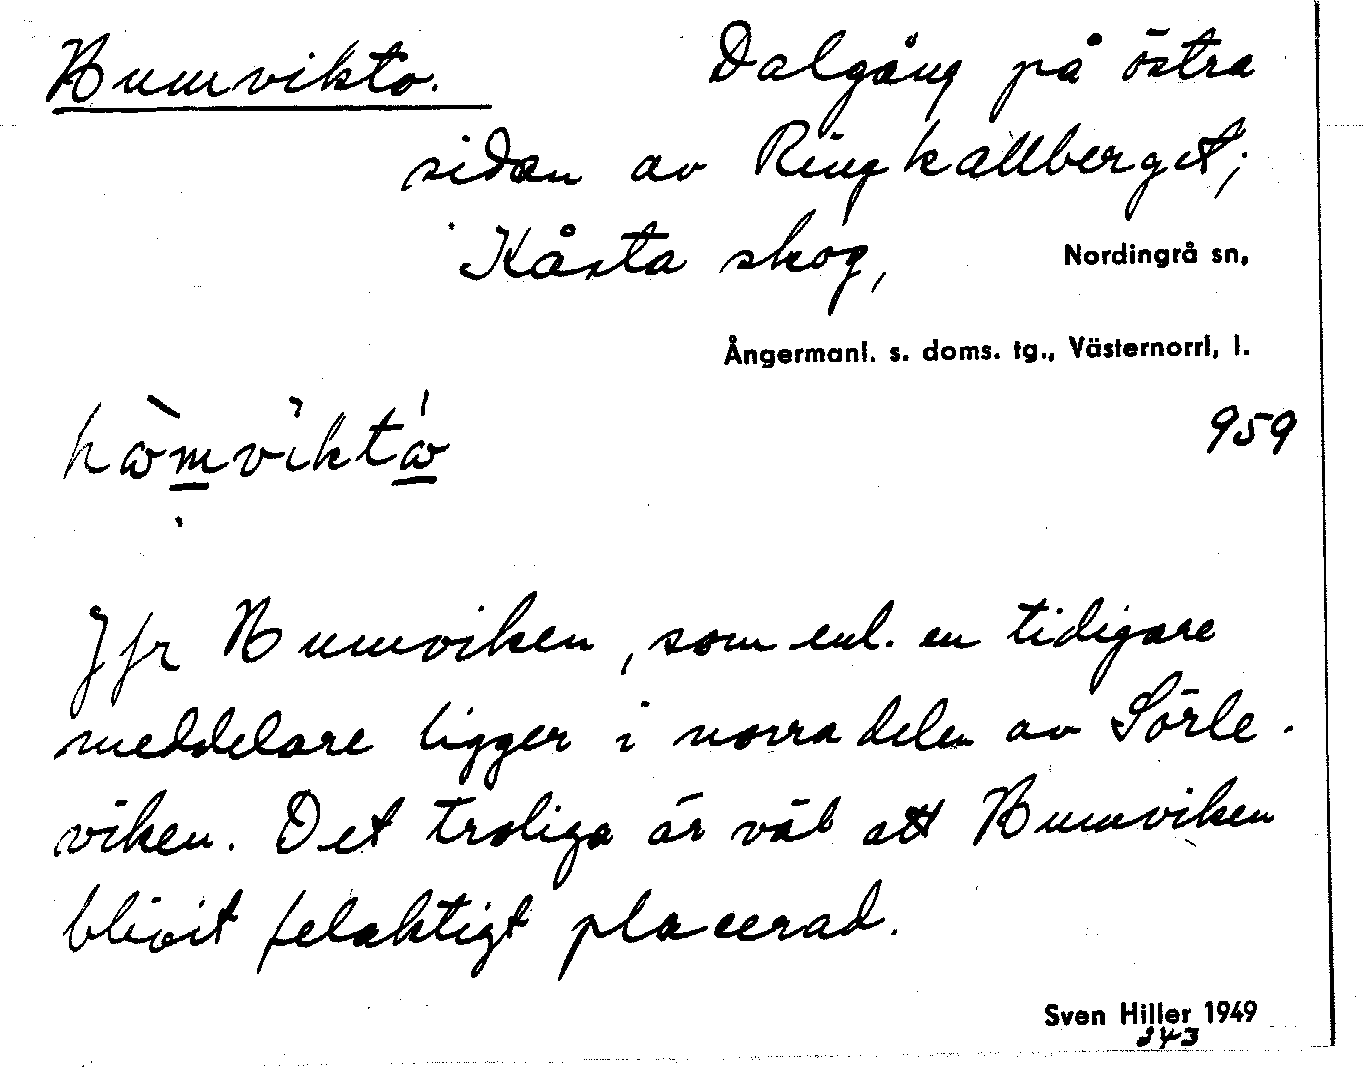 Humvikto.
Dalgång på östra
sidan av Ringkallberget;
Kåsta skog,
Nordingrå sn,
Ångermanl. s. doms. tg., Västernorrl. l.
959
Jfr Humviken, som enl. en tidigare
meddelare ligger i norra delen av Sörle-
viken. Det troliga är väl att Humviken
blivit felaktigt placerad.
Sven Hiller 1949
343